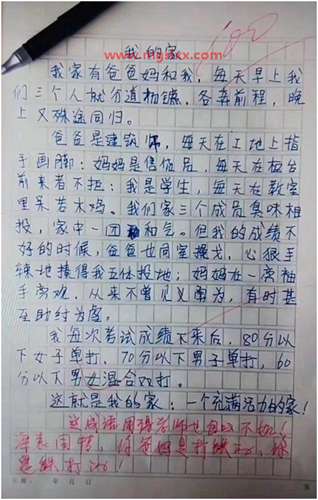 www.mgsxx.com
我的家
我家有爸爸妈和我，每天早上我
们三个人就分道扬镳，各奔前程，晚
上又殊途同归。
爸爸是建筑师，每天在工地上指
手画脚；妈妈是售货员，每天在柜台
前来者不拒；我是学生，每天在教室
里呆若木鸡。我们家三个成员臭味相
投，家中一团和气。但我的成绩不
好的时候，爸爸也同室操戈，心狠手
辣地揍得我五体投地；妈妈在一旁袖
手旁观，从来不曾见义勇为，有时甚
至助纣为虐。
我每次考试成绩下来后，80分以
下女子单打，70分以下男子单打，60
分以下男女混合双打。
这就是我的家：一个充满活力的家！